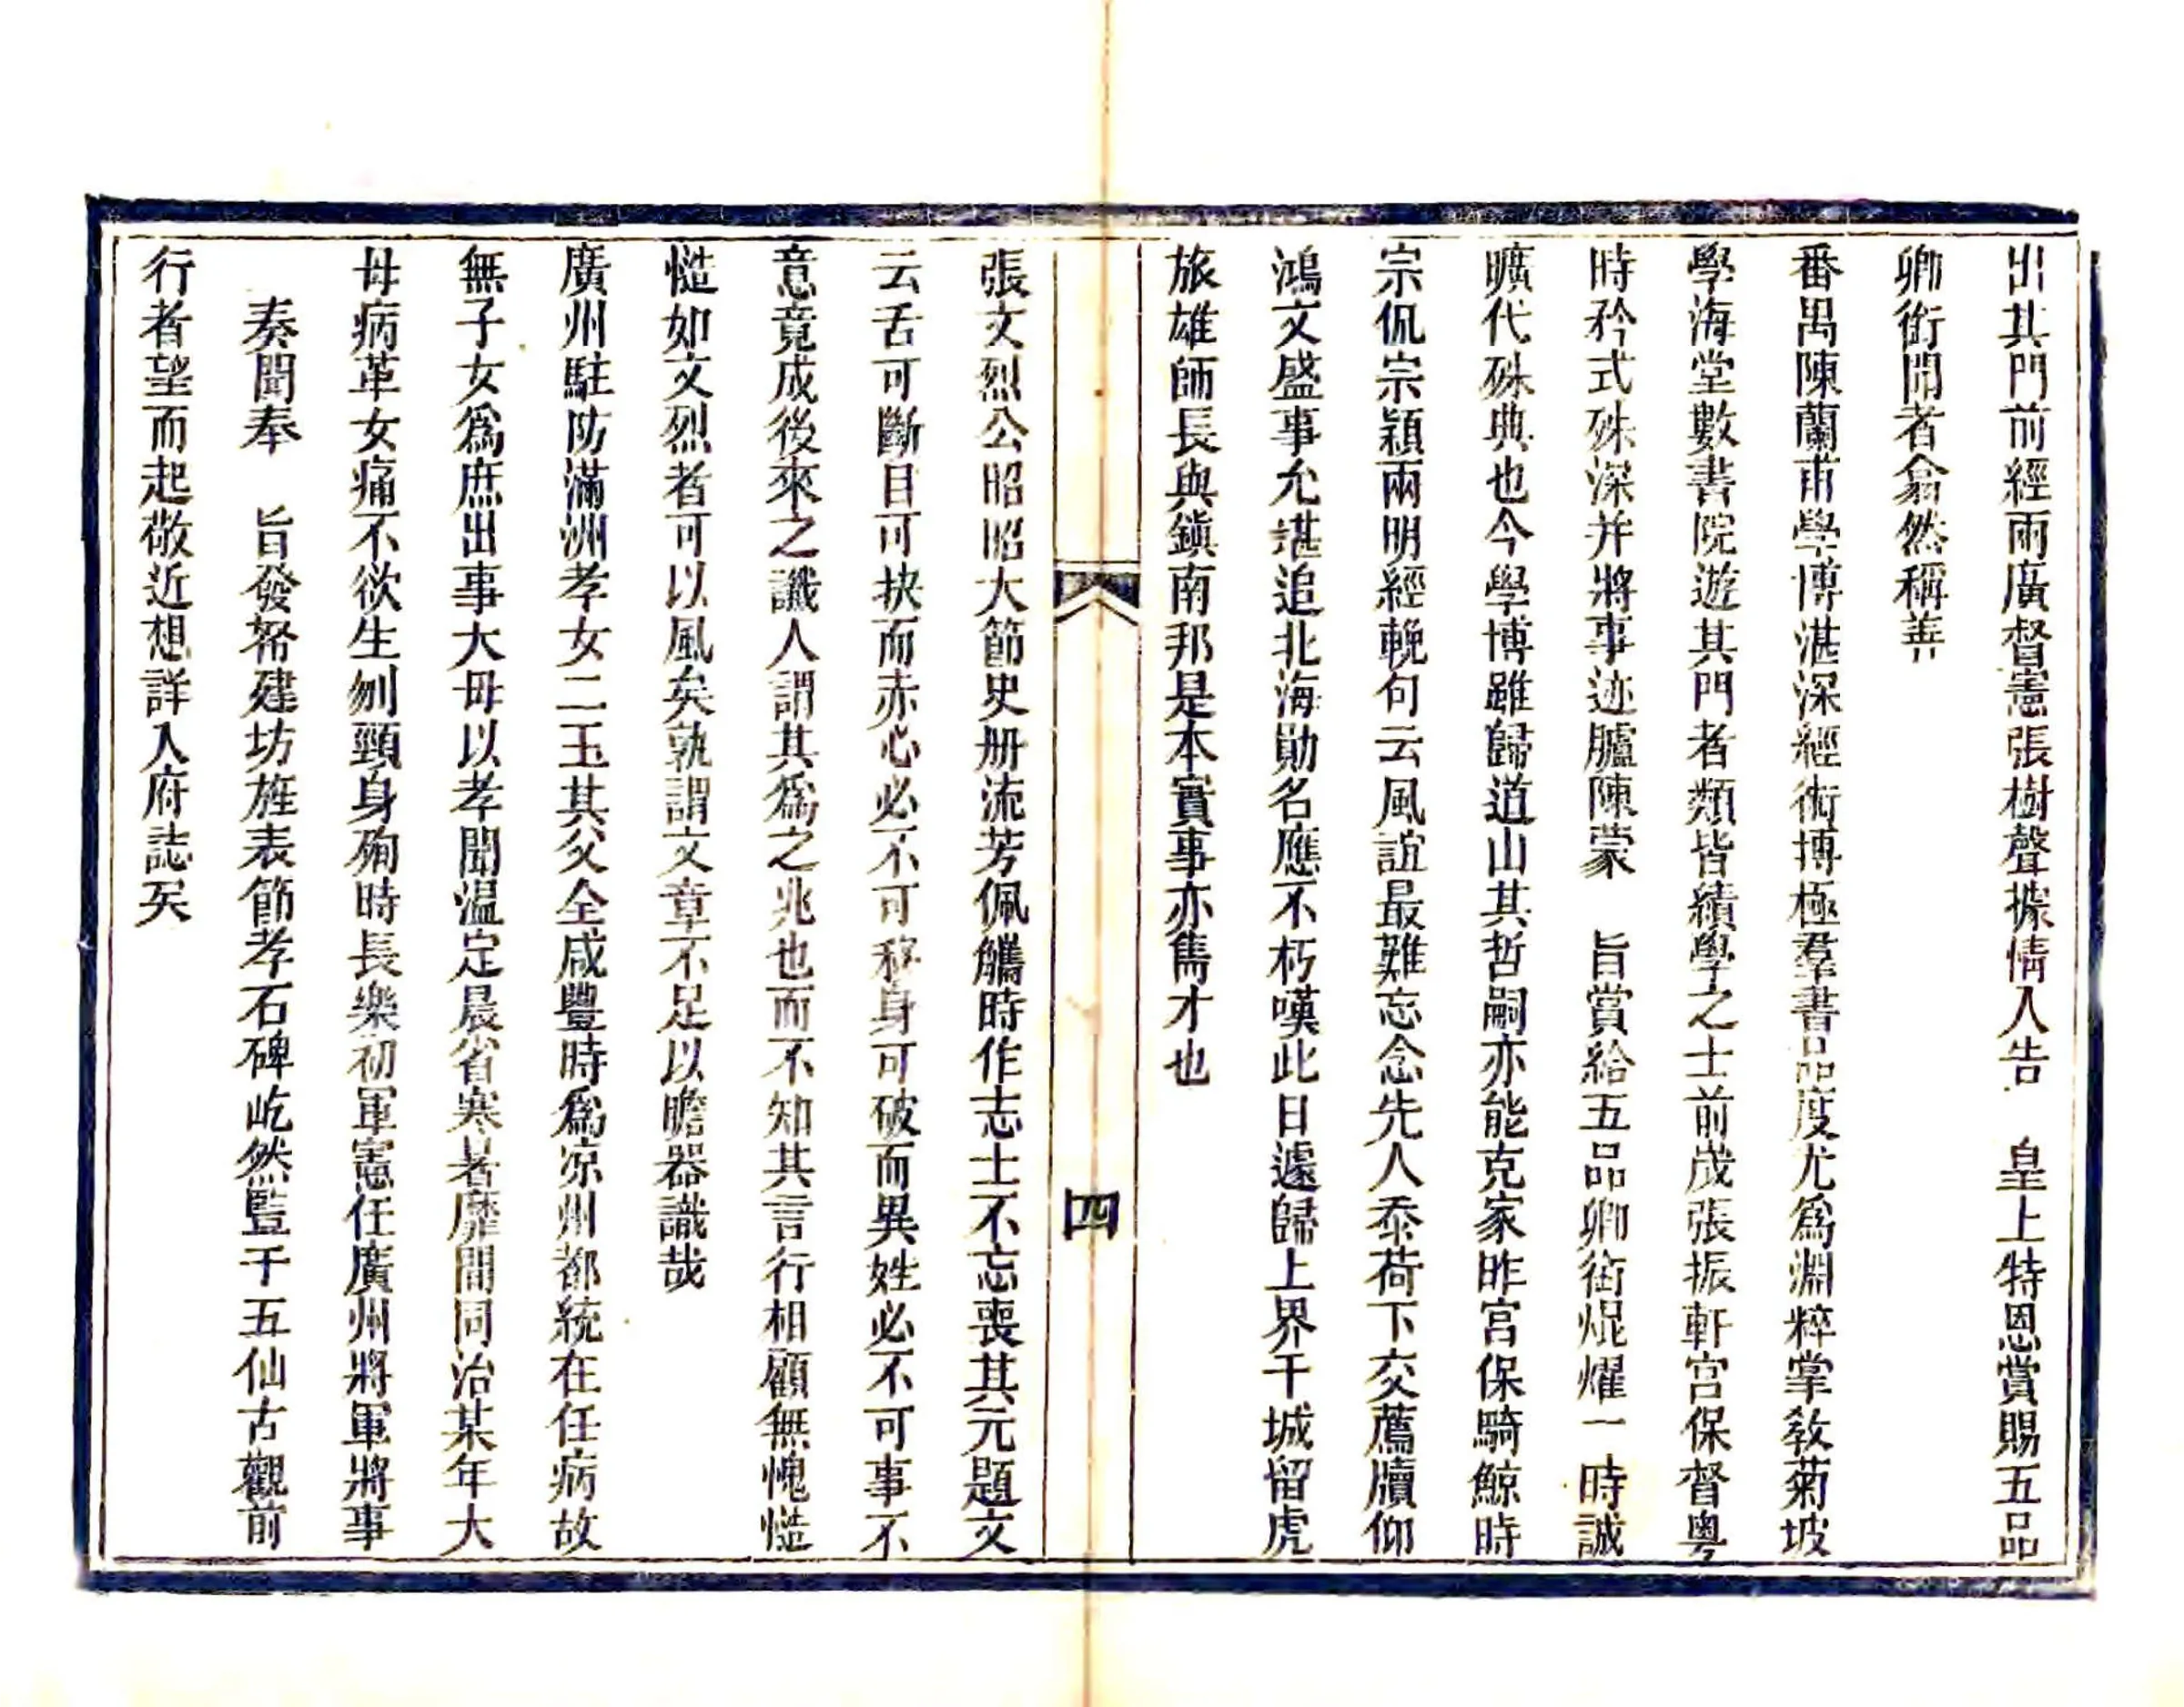 出其門前經兩廣督憲張樹聲據情入告　皇上特恩賞賜五品
卿銜聞者翕然稱善
番禺陳蘭甫學博湛深經術博極羣書品度尤為淵粹掌敎菊坡
學海堂數書院遊其門者類皆績學之士前歲張振軒宮保督粵
時矜式殊深并將事迹臚陳蒙　旨賞給五品卿銜焜燿一時誠
曠代殊典也今學博雖歸道山其哲嗣亦能克家昨宮保騎鯨時
宗侃宗穎兩明經輓句云風誼最難忘念先人忝荷下交薦牘仰
鴻文盛事允堪追北海勛名應不朽嘆此日遽歸上界干城留虎
旅雄師長與鎭南邦是本實事亦雋才也
四
張文烈公昭昭大節史册流芳佩觿時作志士不忘喪其元題文
云舌可斷目可抉而赤心必不可移身可破而異姓必不可事不
意竟成後來之讖人謂其爲之兆也而不知其言行相顧無愧慥
慥如文烈者可以風矣孰謂文章不足以瞻器識哉
廣州駐防滿洲孝女二玉其父全咸豐時爲凉州都統在任病故
無子女爲庶出事大母以孝聞温定晨省寒暑靡間同治某年大
母病革女痛不欲生刎頸身殉時長樂初軍憲任廣州將軍將事
奏聞奉　旨發帑建坊旌表節孝石碑屹然豎于五仙古觀前
行者望而起敬近想詳入府誌矣